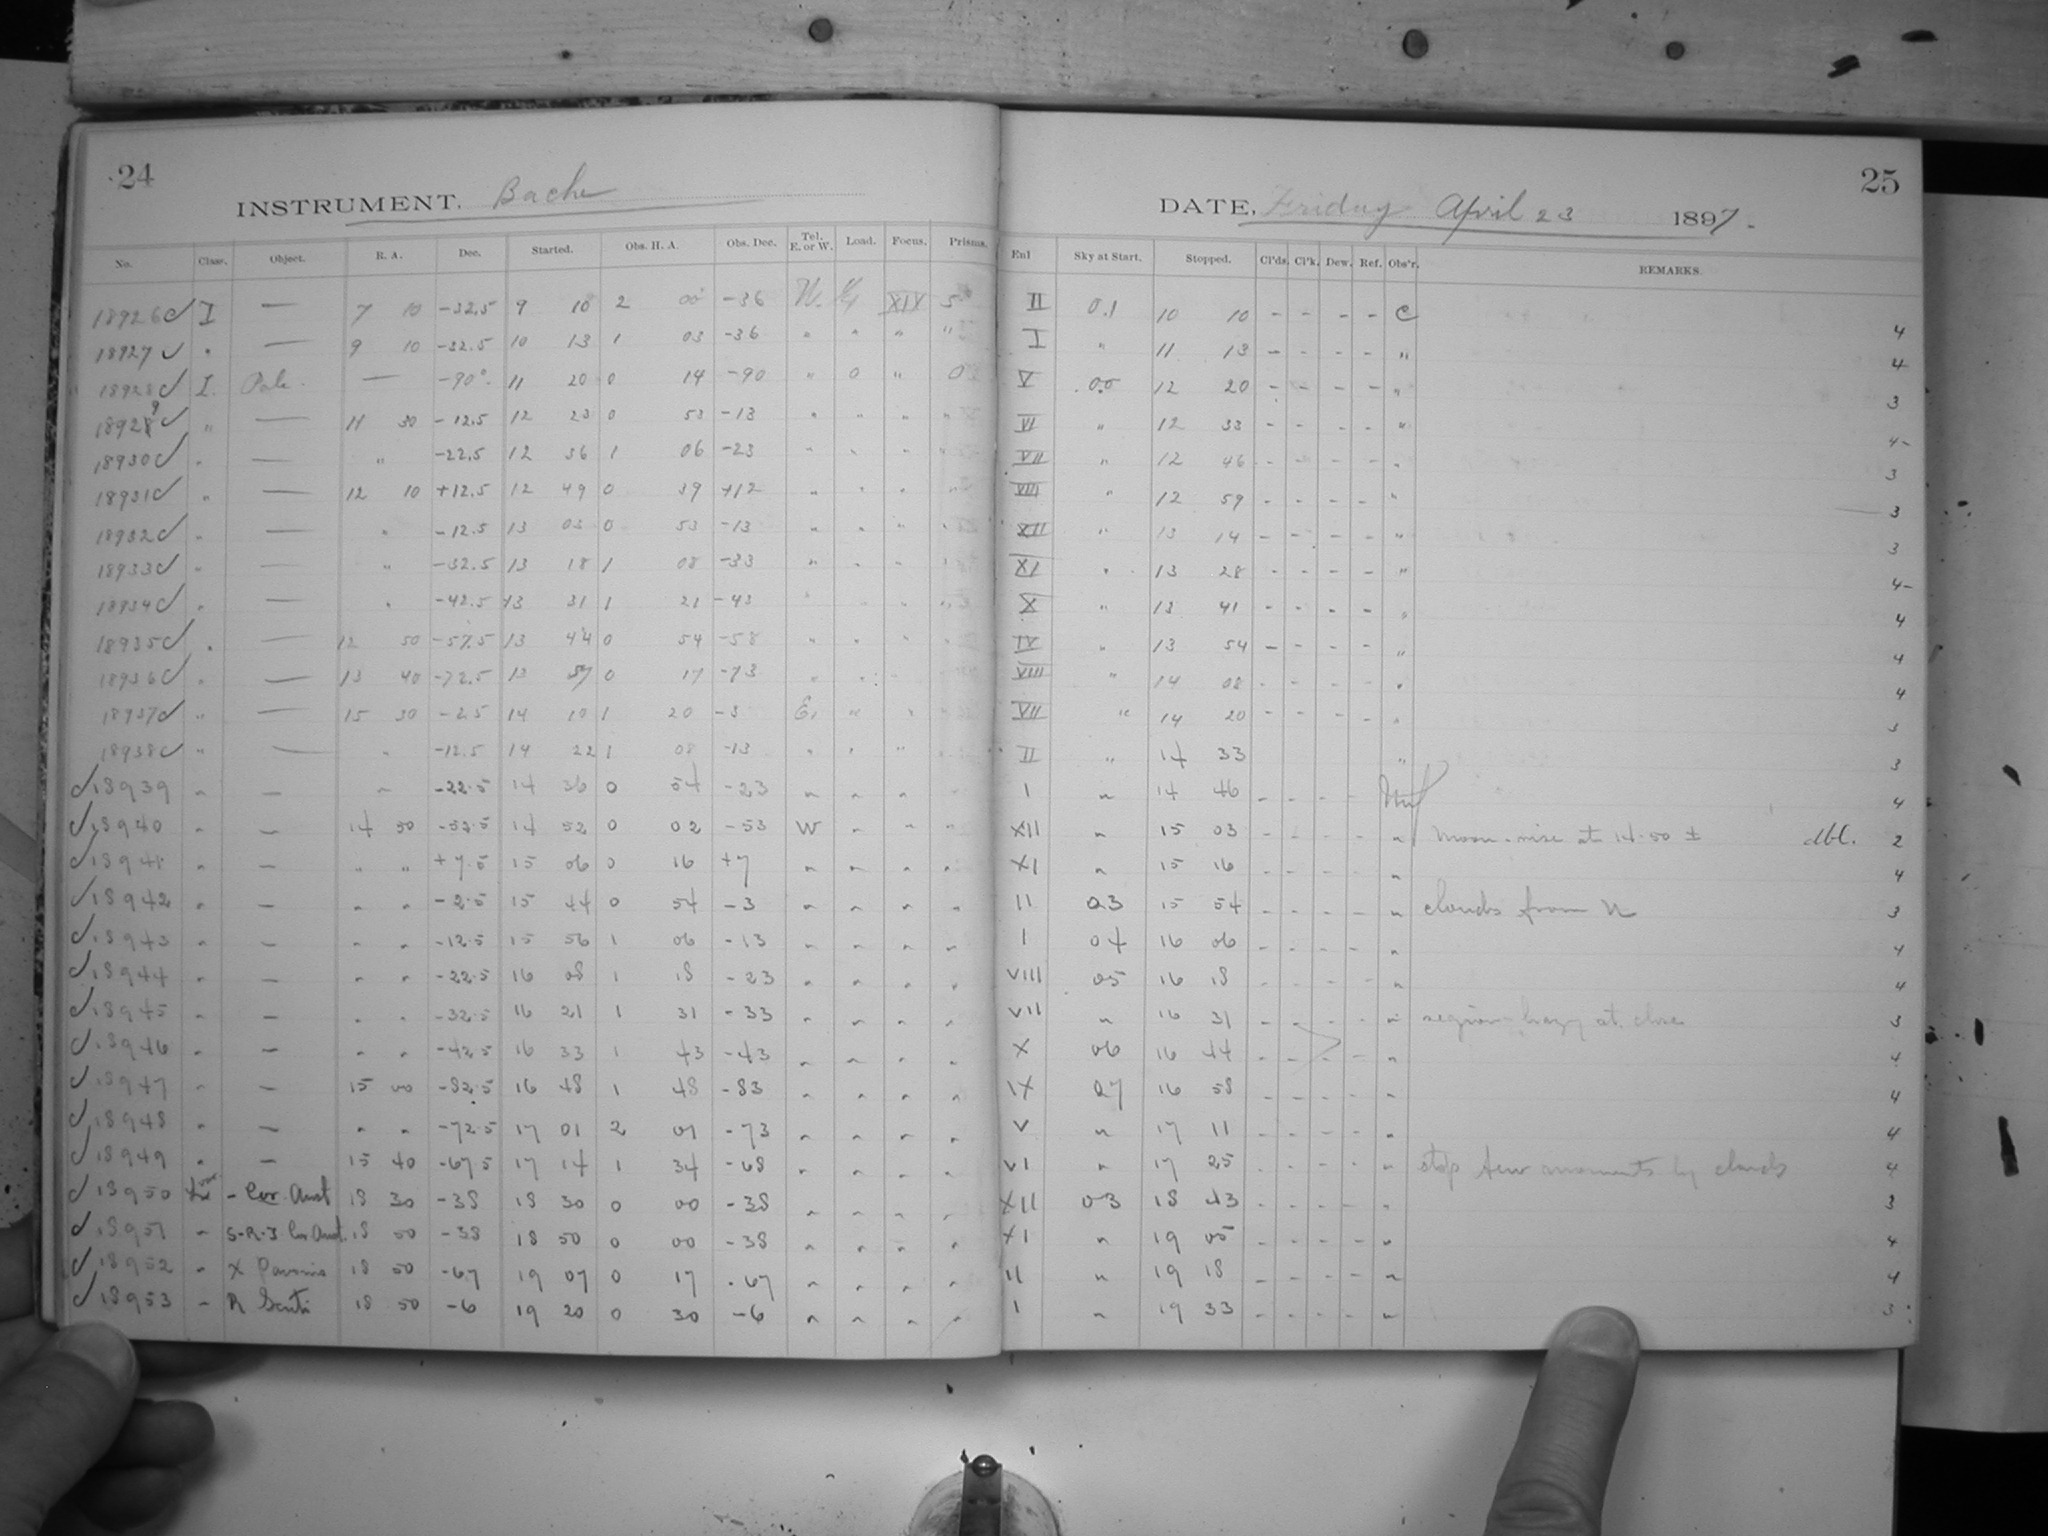 24
INSTRUMENT, Bache
No. Class. Object. R. A. Dec. Started. Obs. H. A. Obs. Dec. Tel. E. or W. Load. Focus. Prisms.
18926 I — 7 10 -32.5 9 10 2 00 -36 W. XIX 5
18927 " — 9 10 -32.5 10 13 1 03 -36 " " " "
18928 I. Pole. — -90°. 11 20 0 14 -90 " 0 " 0
18929 " — 11 30 -12.5 12 23 0 53 -13 " " " "
18930 " — " -22.5 12 36 1 06 -23 " " " "
18931 " — 12 10 +12.5 12 49 0 39 +12 " " " "
18932 " — " -12.5 13 03 0 53 -13 " " " "
18933 " — " -32.5 13 18 1 08 -33 " " " "
18934 " — " -42.5 13 31 1 21 -43 " " " "
18935 " — 12 50 -57.5 13 44 0 54 -58 " " " "
18936 " — 13 40 -72.5 13 57 0 17 -73 " " " "
18937 " — 15 30 -2.5 14 10 1 20 -3 E. " " "
18938 " — " -12.5 14 22 1 08 -13 " " " "
18939 " — " -22.5 14 36 0 54 -23 " " " "
18940 " — 14 50 -52.5 14 52 0 02 -53 W " " "
18941 " — " " +7.5 15 06 0 16 +7 " " " "
18942 " — " " -2.5 15 44 0 54 -3 " " " "
18943 " — " " -12.5 15 56 1 06 -13 " " " "
18944 " — " " -22.5 16 08 1 18 -23 " " " "
18945 " — " " -32.5 16 21 1 31 -33 " " " "
18946 " — " " -42.5 16 33 1 43 -43 " " " "
18947 " — 15 00 -82.5 16 48 1 48 -83 " " " "
18948 " — " " -72.5 17 01 2 01 -73 " " " "
18949 " — 15 40 -67.5 17 14 1 34 -68 " " " "
18950 - Cor. Aust 18 30 -38 18 30 0 00 -38 " " " "
18951 " S-R-T Cor Aust. 18 50 -38 18 50 0 00 -38 " " " "
18952 " X Pavonis 18 50 -67 19 07 0 17 -67 " " " "
18953 " R Scuti 18 50 -6 19 20 0 30 -6 " " " "
25
DATE, Friday April 23 1897.
Enl Sky at Start. Stopped. Cl'ds. Cl'k. Dew. Ref. Obs'r. REMARKS.
II 0.1 10 10 - - - - C 4
I " 11 13 - - - - " 4
V 0.0 12 20 - - - - " 3
VI " 12 33 - - - - " 4-
VII " 12 46 - - - - " 3
VIII " 12 59 - - - - " 3
XII " 13 14 - - - - " 3
XI " 13 28 - - - - " 4-
X " 13 41 - - - - " 4
" 13 54 - - - - " 4
VIII " 14 08 - - - - " 4
VII " 14 20 - - - - " 3
II " 14 33 " 3
I " 14 46 - - - - 4
XII " 15 03 - - - - " Moon-rise at 14.50 ± dbl. 2
XI " 15 16 - - - - " 4
II 03 15 54 - - - - " clouds from N 3
I 04 16 06 - - - - " 4
VIII 05 16 18 - - - - " 4
VII " 16 31 - - - - " region hazy at close 3
X 06 16 44 - - - - " 4
IX 07 16 58 - - - - " 4
V " 17 11 - - - - " 4
VI " 17 25 - - - - " stop few moments by clouds 4
XII 03 18 43 - - - - " 3
XI " 19 05 - - - - " 4
II " 19 18 - - - - " 4
I " 19 33 - - - - " 3